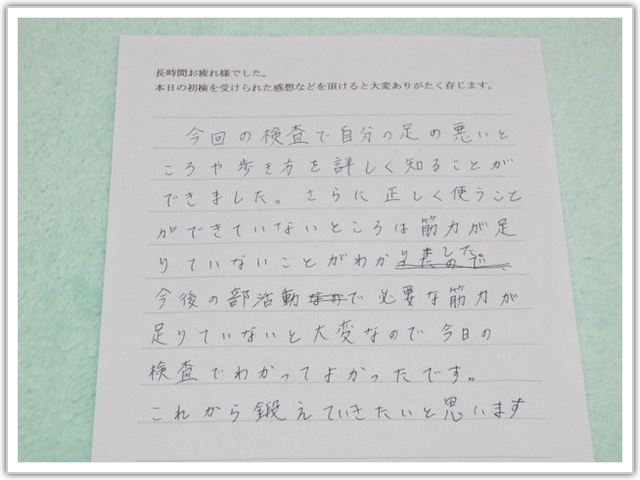 長時間お疲れ様でした。
本日の初検を受けられた感想などを頂けると大変ありがたく存じます。
今回の検査で自分の足の悪いと
ころや歩き方を詳しく知ることが
できました。さらに正しく使うこと
ができていないところは筋力が足
りていないことがわかりました
今後の部活動で必要な筋力が
足りていないと大変なので今日の
検査でわかってよかったです。
これから鍛えていきたいと思います